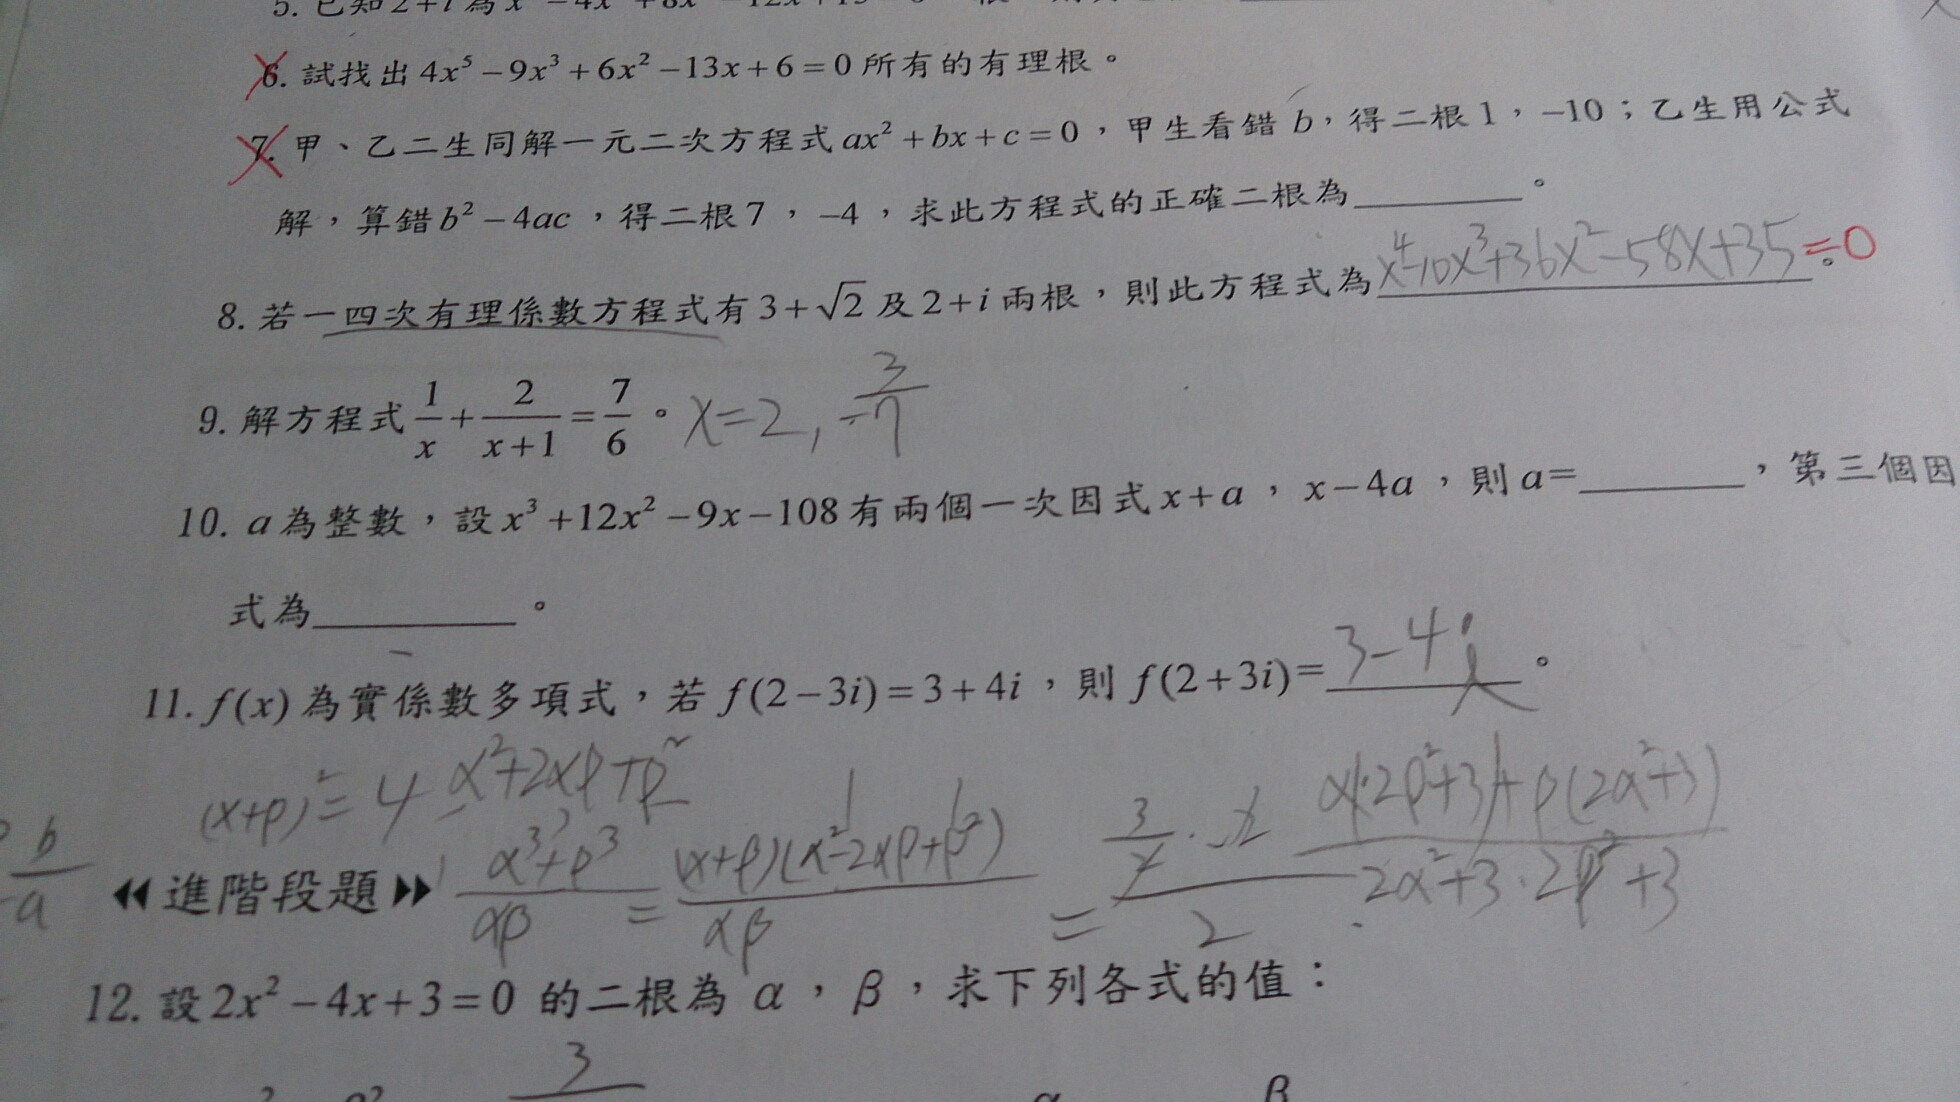 6. 試找出 4x⁵ − 9x³ + 6x² − 13x + 6 = 0 所有的有理根。
7. 甲、乙二生同解一元二次方程式 ax² + bx + c = 0，甲生看錯 b，得二根 1，−10；乙生用公式
解，算錯 b² − 4ac，得二根 7，−4，求此方程式的正確二根為________。
8. 若一四次有理係數方程式有 3+√2 及 2+i 兩根，則此方程式為 x⁴-10x³+36x²-58x+35=0。
9. 解方程式 1/x + 2/(x+1) = 7/6。 x=2, 3/-7
10. a 為整數，設 x³ + 12x² − 9x − 108 有兩個一次因式 x+a，x−4a，則 a=________，第三個因
式為________。
11. f(x) 為實係數多項式，若 f(2−3i) = 3+4i，則 f(2+3i)= 3-4i。
(x+β)² = 4 α²+2αβ+β²
b/a
◀◀進階段題▶▶ (α³+β³)/αβ = (α+β)(α²-2αβ+β²)/αβ = α(2β²+3)+β(2α²+3) / 2α²+3·2β²+3
12. 設 2x² − 4x + 3 = 0 的二根為 α，β，求下列各式的值：
3
β